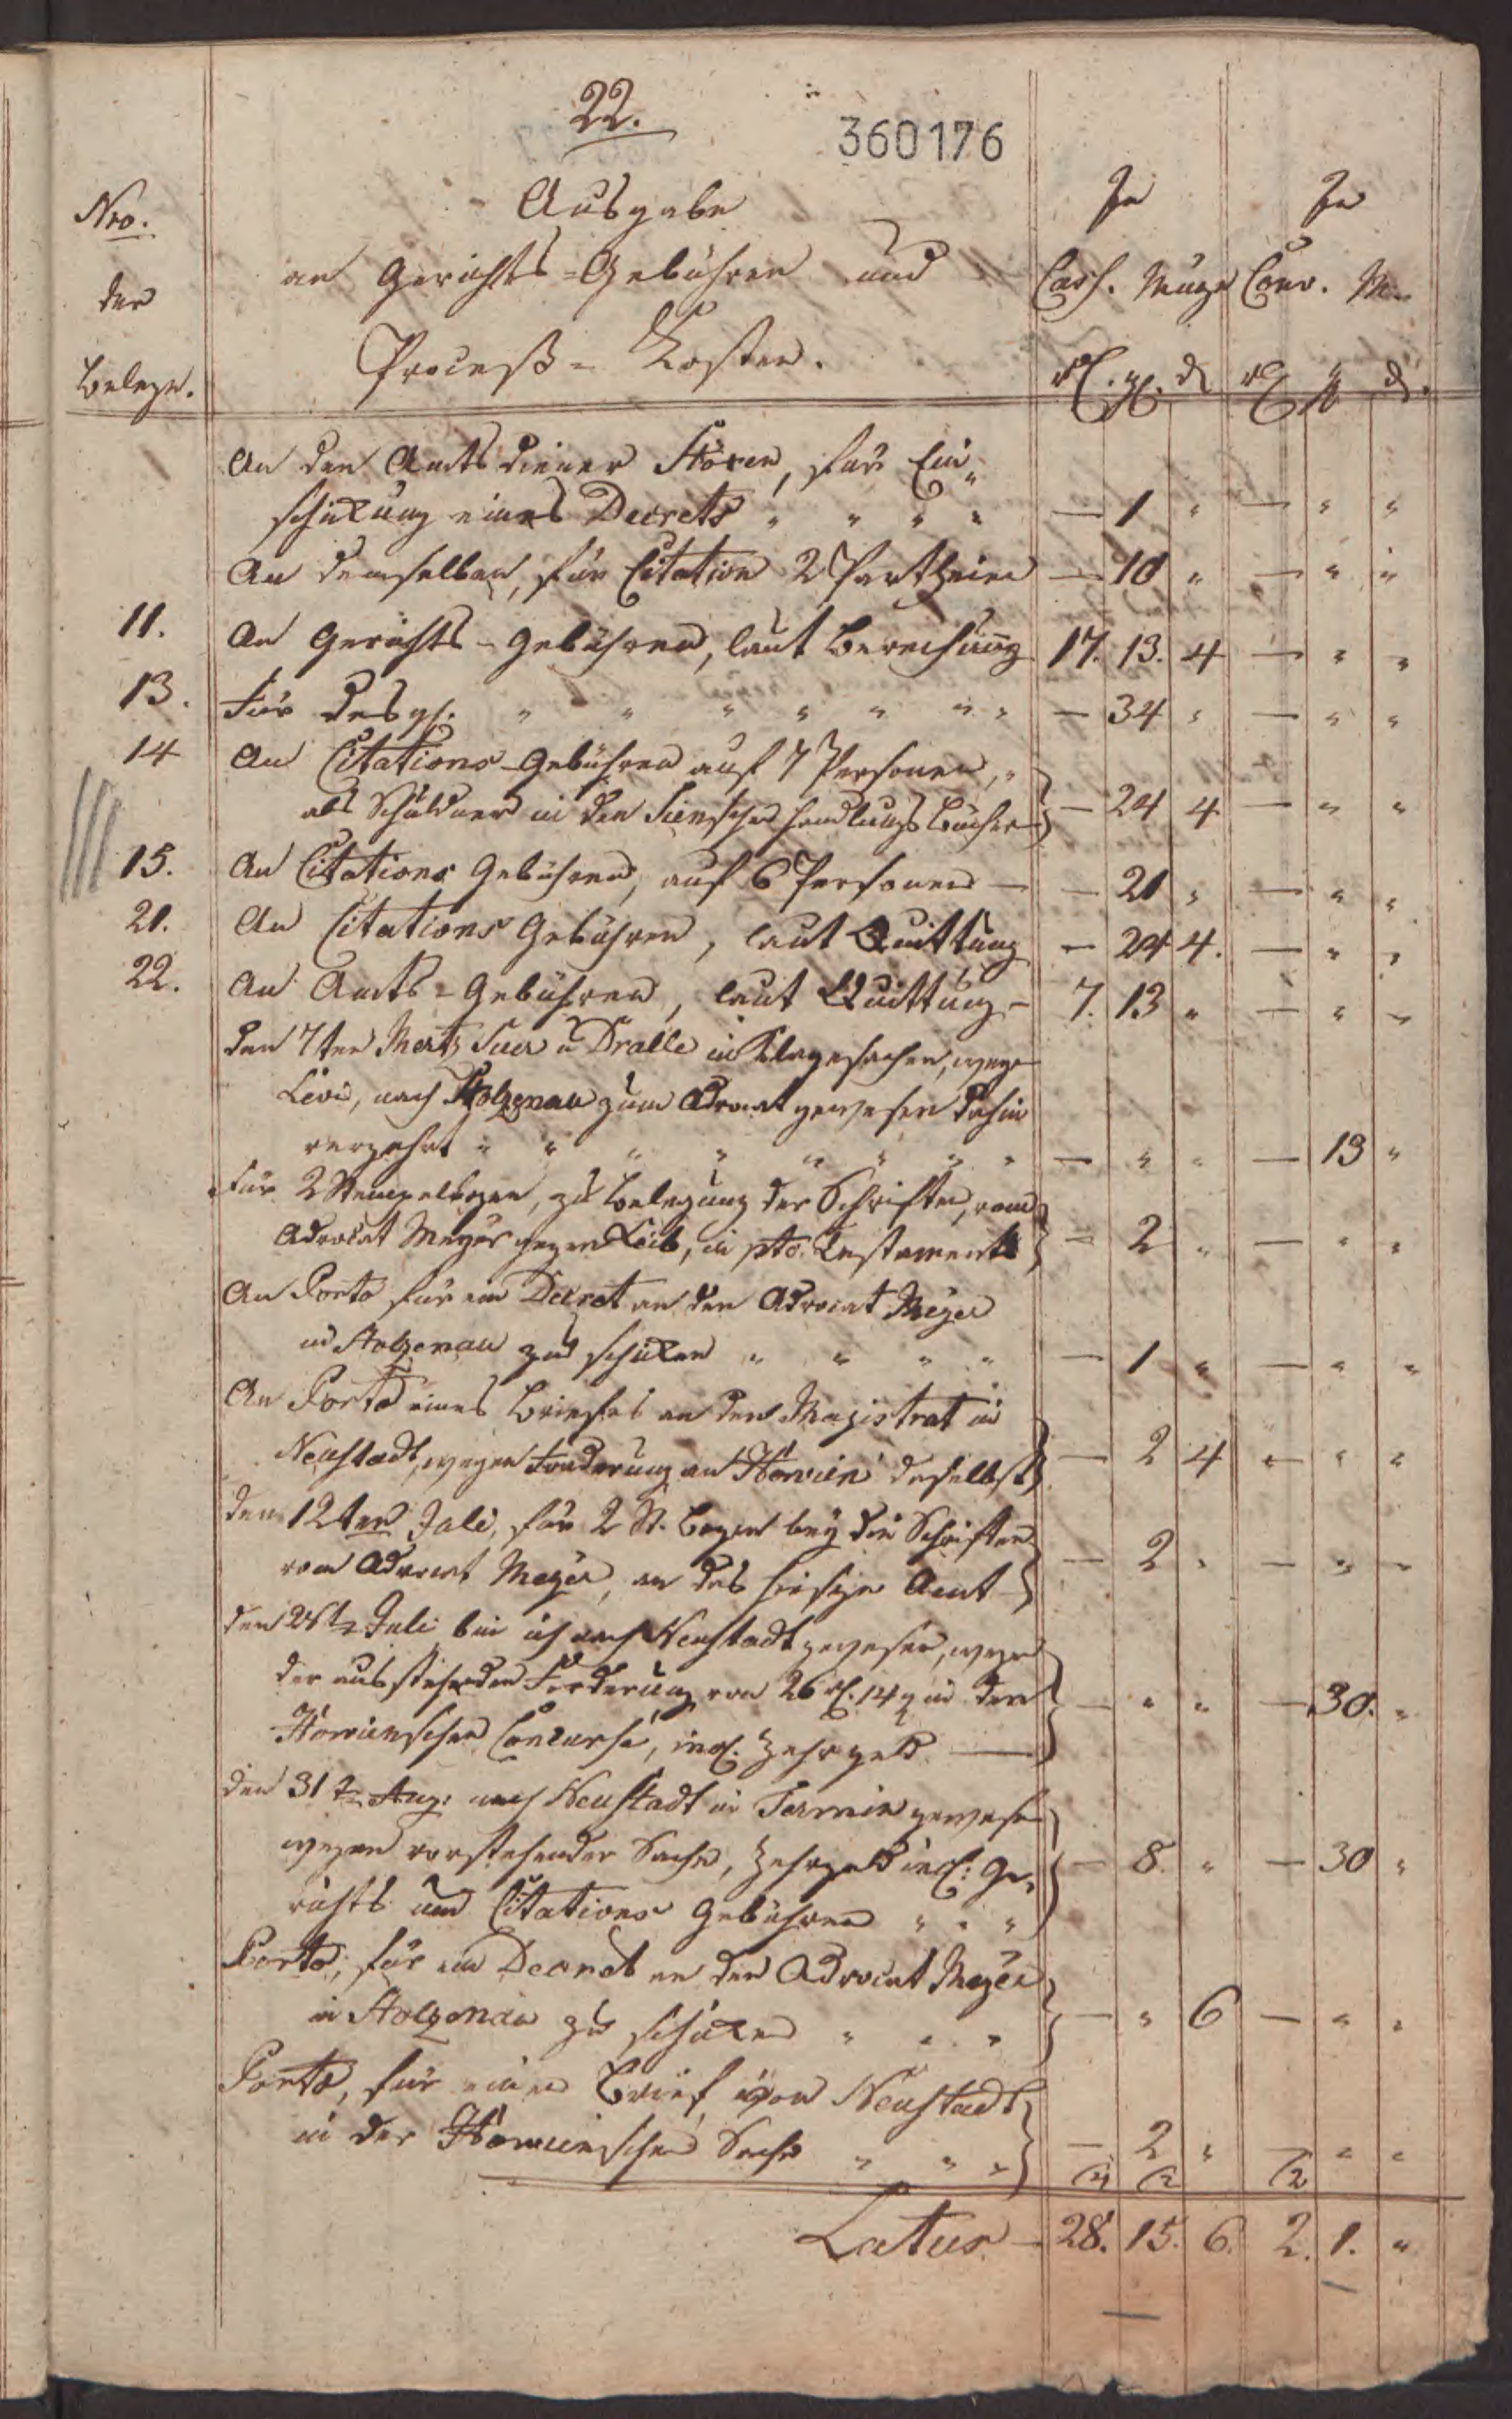 22.
360176
Nro. der Belege.
Ausgabe
an Gerichts-Gebühren und
Proceß-Kosten.
In In
Cass. Münze Conv. M.
An den Amtsdiener Stöxen, für Ein„
schikung eines Decrets „ „ „ „ — 1 „ — „ „
An demselben, für Citation 2 Partheien — 10 „ — „ „
11. An Gerichts-Gebühren, laut Berechnung 17. 13. 4 — „ „
13. Für desgl. „ „ „ „ „ „ „ — 34 „ — „ „
14 An Citations-Gebühren auf 7 Personen,
als Schuldner in den Handlungs Bücher — 24 4 — „ „
15. An Citations Gebühren, auf 6 Personen — — 21 „ — „ „
21. An Citations Gebühren, laut Quittung — 24 4. — „ „
22. An Amts-Gebühren, laut Quittung — 7. 13 „ — „ „
den 7ten Mertz u Dralle in Klagesachen, wegen
Levi, nach Stolzenau zum Advocat gewesen dahin
verzehrt „ „ „ „ „ „ „ „ — „ „ — 13 „
Für 2 Stempelbogen, zu Belegung der Schriften, vom
Advocat Meyer gegen Leib, in pto. Testaments — 2 „ — „ „
An Porto für ein Decret an den Advocat Meyer
in Stolzenau zu schiken „ „ „ „ — 1 „ — „ „
An Porto eines Briefes an den Magistrat in
Neustadt, wegen Forderung an daselbst — 2 4 — „ „
den 12ten Juli, für 2 St. Bogen bey die Schriften
vom Advocat Meyer, an das hiesige Amt — — 2 „ — „ „
den Juli bin ich nach Neustadt gewesen, wegen
der ausstehenden Forderung von 26 rl. 14 g in dem
Concurse, incl. Zehrgeld. — — „ „ — 30. „
den 31 t. Aug. nach Neustadt in Termin gewesen
wegen vorstehender Sache, Zehrgeld incl: Ge„
richts und Citations Gebühren „ „ „ — 8. „ — 30 „
Porto, für ein Decret an den Advocat Meyer
in Stolzenau zu schiken „ „ „ — „ 6 — „ „
Porto, für einen Brief von Neustadt
in der Sache „ „ „ — 2 „ — „ „
Latus — 28. 15. 6. 2. 1. „